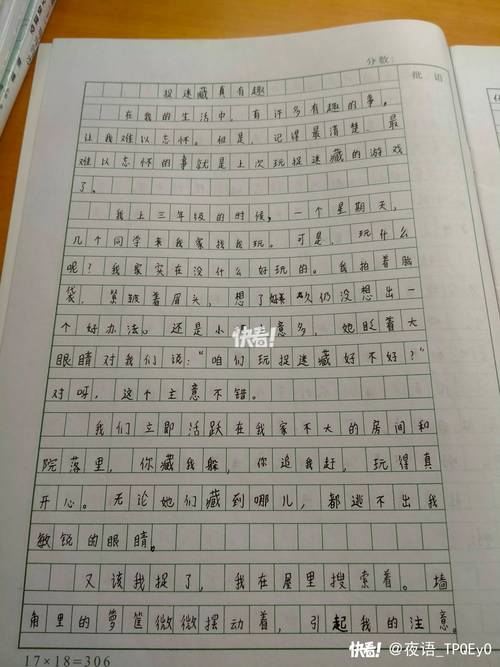 分数：
批语
捉迷藏真有趣
在我的生活中，有许多有趣的事，
让我难以忘怀。但是，记得最清楚、最
难以忘怀的事就是上次玩捉迷藏的游戏
了。
我上三年级的时候，一个星期天，
几个同学来我家找我玩。可是，玩什么
呢？我家实在没什么好玩的。我拍着脑
袋，紧皱着眉头，想了好久仍没想出一
个好办法。还是小主意多，她眨着大
眼睛对我们说："咱们玩捉迷藏好不好？"
对呀，这个主意不错。
我们立即活跃在我家不大的房间和
院落里，你藏我躲，你追我赶，玩得真
开心。无论她们藏到哪儿，都逃不出我
敏锐的眼睛。
又该我捉了，我在屋里搜索着。墙
角里的萝筐微微摆动着，引起我的注意。
17×18=306
快看!
快看! @夜语_TP0Ey0